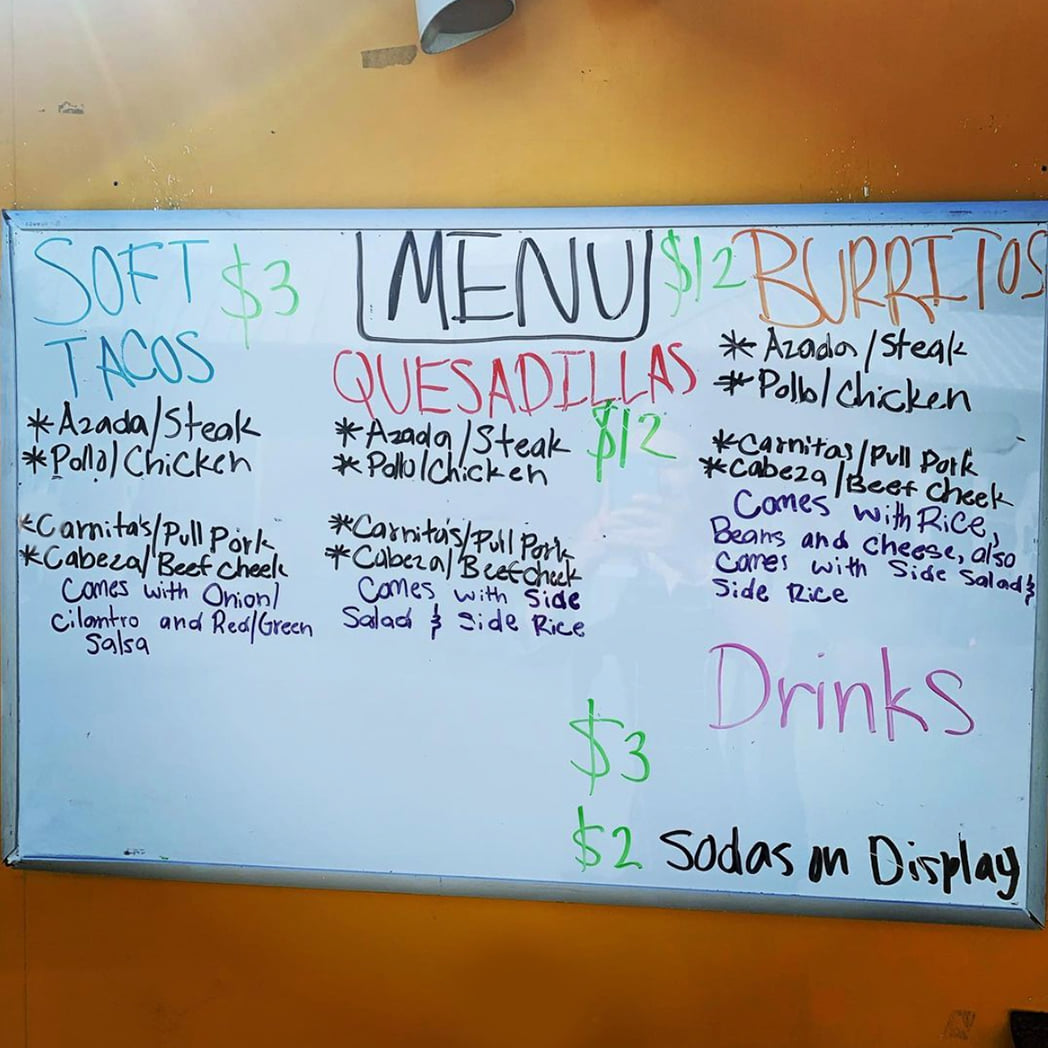 MENU
SOFT $3
TACOS
*Azada/Steak
*Pollo/Chicken
*Carnita's/Pull Pork
*Cabeza/Beef cheek
Comes with Onion/
cilantro and Red/Green
Salsa
QUESADILLAS
$12
*Azada/Steak
*Pollo/Chicken
*Carnita's/Pull Pork
*Cabeza/Beef cheek
Comes with Side
Salad & Side Rice
$12 BURRITOS
*Azada/Steak
*Pollo/Chicken
*Carnitas/Pull Pork
*Cabeza/Beef cheek
Comes with Rice,
Beans and cheese, also
Comes with Side Salad &
Side Rice
Drinks
$3
$2 Sodas on Display